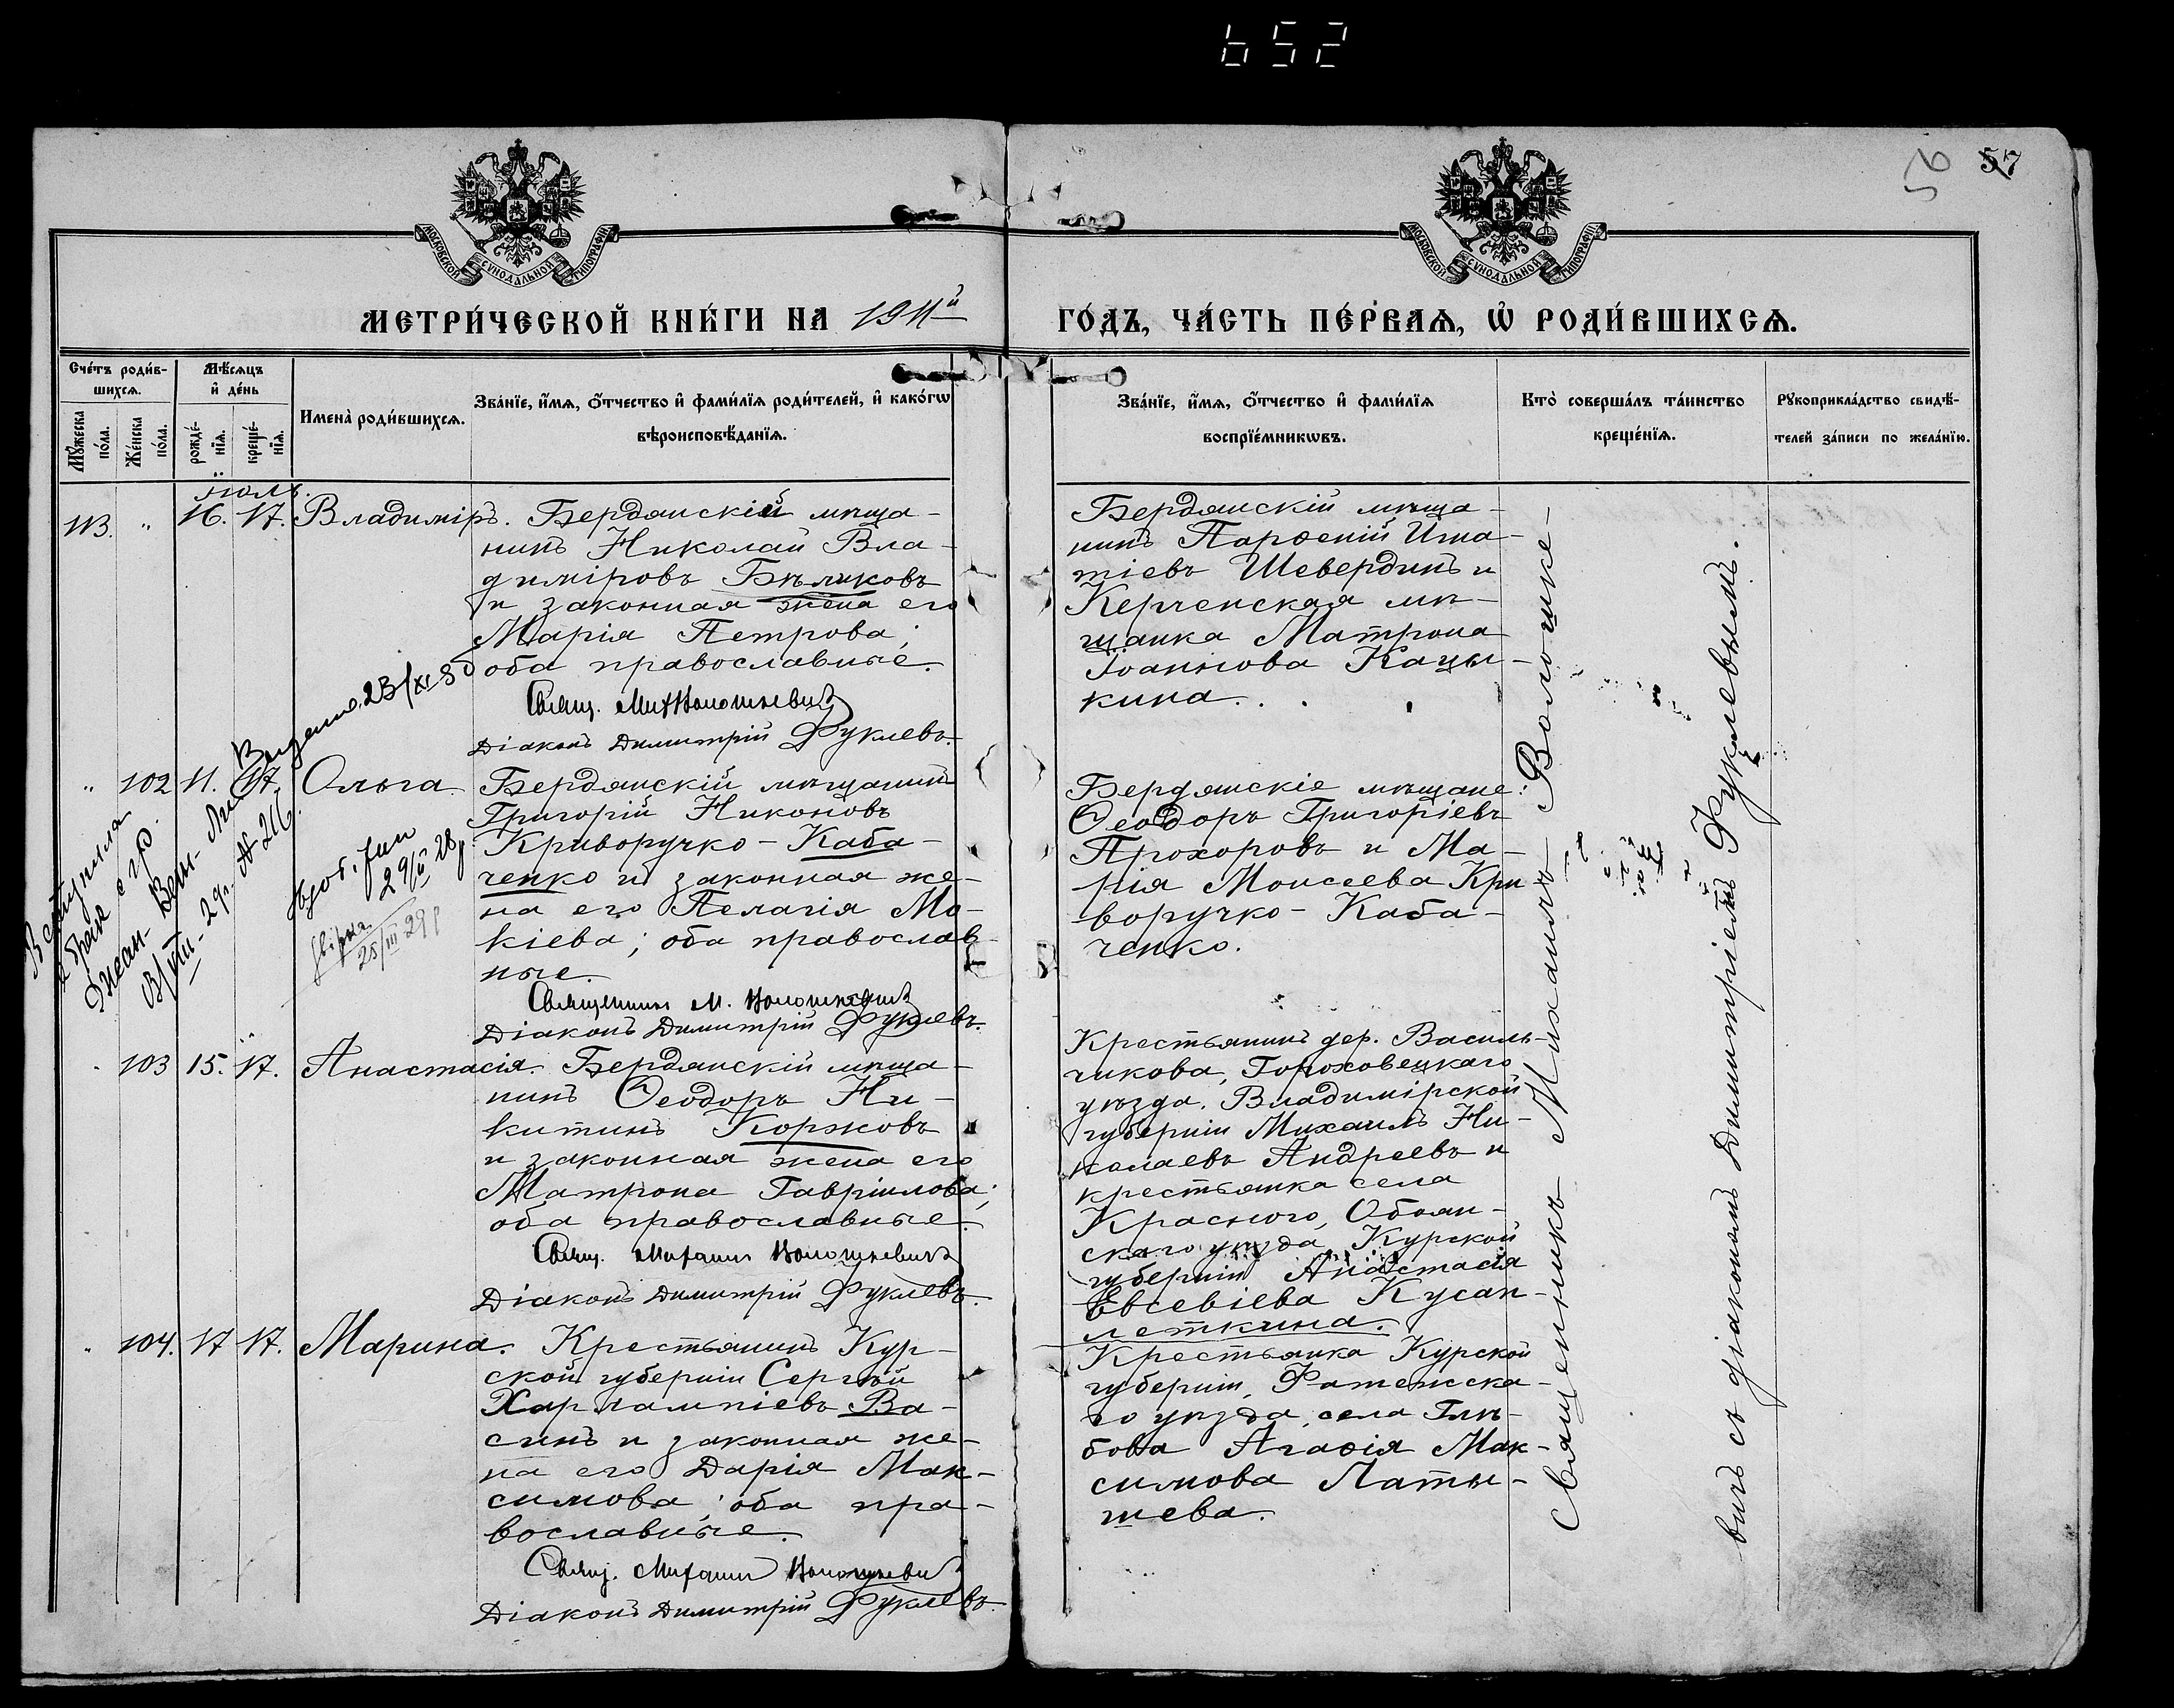 652
57
56
МОСКОВСКОЙ СѴНОДАЛЬНОЙ ТИПОГРАФІИ
МОСКОВСКОЙ СѴНОДАЛЬНОЙ ТИПОГРАФІИ
МЕТРИ́ЧЕСКОЙ КНИ́ГИ НА 1911й
ГО́ДЪ, ЧА́СТЬ ПЕ́РВАѦ, Ѡ҆ РОДИ́ВШИХСѦ.
Сче́тъ роди́в-
шихсѧ.
Мꙋжеска по́ла.
Же́нска по́ла.
Мѣ́сѧцъ
и҆ де́нь
рожде́-
нїѧ.
креще́-
нїѧ.
Имена̀ роди́вшихсѧ.
Зва́нїе, и҆́мѧ, ѻ҆́тчество и҆ фами́лїѧ роди́телей, и҆ како́гѡ
вѣроисповѣ́данїѧ.
Зва́нїе, и҆́мѧ, ѻ҆́тчество и҆ фами́лїѧ
воспрїе́мникѡвъ.
Кто̀ соверша́лъ та́инство
креще́нїѧ.
Рꙋкоприкла́дство свидѣ́-
телей за́писи по жела́нїю.
Іюль.
113. " 16. 17. Владиміръ. Бердянскій мѣща-
нинъ Николай Вла-
диміровъ Бѣликовъ
и законная жена его
Марія Петрова;
оба православные.
Свящ. Мих Волошкевичъ
Діаконъ Димитрій Фуклевъ.
Бердянскій мѣща-
нинъ Парѳеній Игна-
тіевъ Шевердинъ и
Керченская мѣ-
щанка Матрона
Іоаннова Кацы-
кина.
" 102 11. 17. Ольга. Бердянскій мѣщанинъ
Григорій Никоновъ
Криворучко-Каба-
ченко и законная же-
на его Пелагія Мо-
кіева; оба православ-
ные.
Священникъ М. Волошкевичъ
Діаконъ Димитрій Фуклевъ.
Бердянскіе мѣщане:
Ѳеодоръ Григоріевъ
Прохоровъ и Ма-
рія Моисеева Кри-
воручко-Каба-
ченко.
Выдано 23/XI 85
Вступила
в брак с гр.
13/VIII-29г. № 216.
29/V 28г
25/III 29г
103 15. 17. Анастасія. Бердянскій мѣща-
нинъ Ѳеодоръ Ни-
китинъ Коржовъ
и законная жена его
Матрона Гавріилова;
оба православные.
Свящ. Михаилъ Волошкевичъ
Діаконъ Димитрій Фуклевъ.
Крестьянинъ дер. Василь-
чикова, Гороховецкаго
уѣзда, Владимірской
губерніи Михаилъ Ни-
колаевъ Андреевъ и
крестьянка села
Красного, Обоян-
скаго уѣзда Курской
губерніи Анастасія
Евсевіева Кусан-
леткина.
104. 17 17. Марина. Крестьянинъ Кур-
ской губерніи Сергѣй
Харлампіевъ Ва-
синъ и законная же-
на его Дарія Мак-
симова; оба пра-
вославные.
Свящ. Михаилъ Волошкевичъ
Діаконъ Димитрій Фуклевъ.
Крестьянка Курской
губерніи, Фатежска-
го уѣзда, села Глѣ-
бова Агаѳія Мак-
симова Латы-
шева.
Священникъ Михаилъ Волошке-
вичъ съ діакономъ Димитріемъ Фуклевымъ.